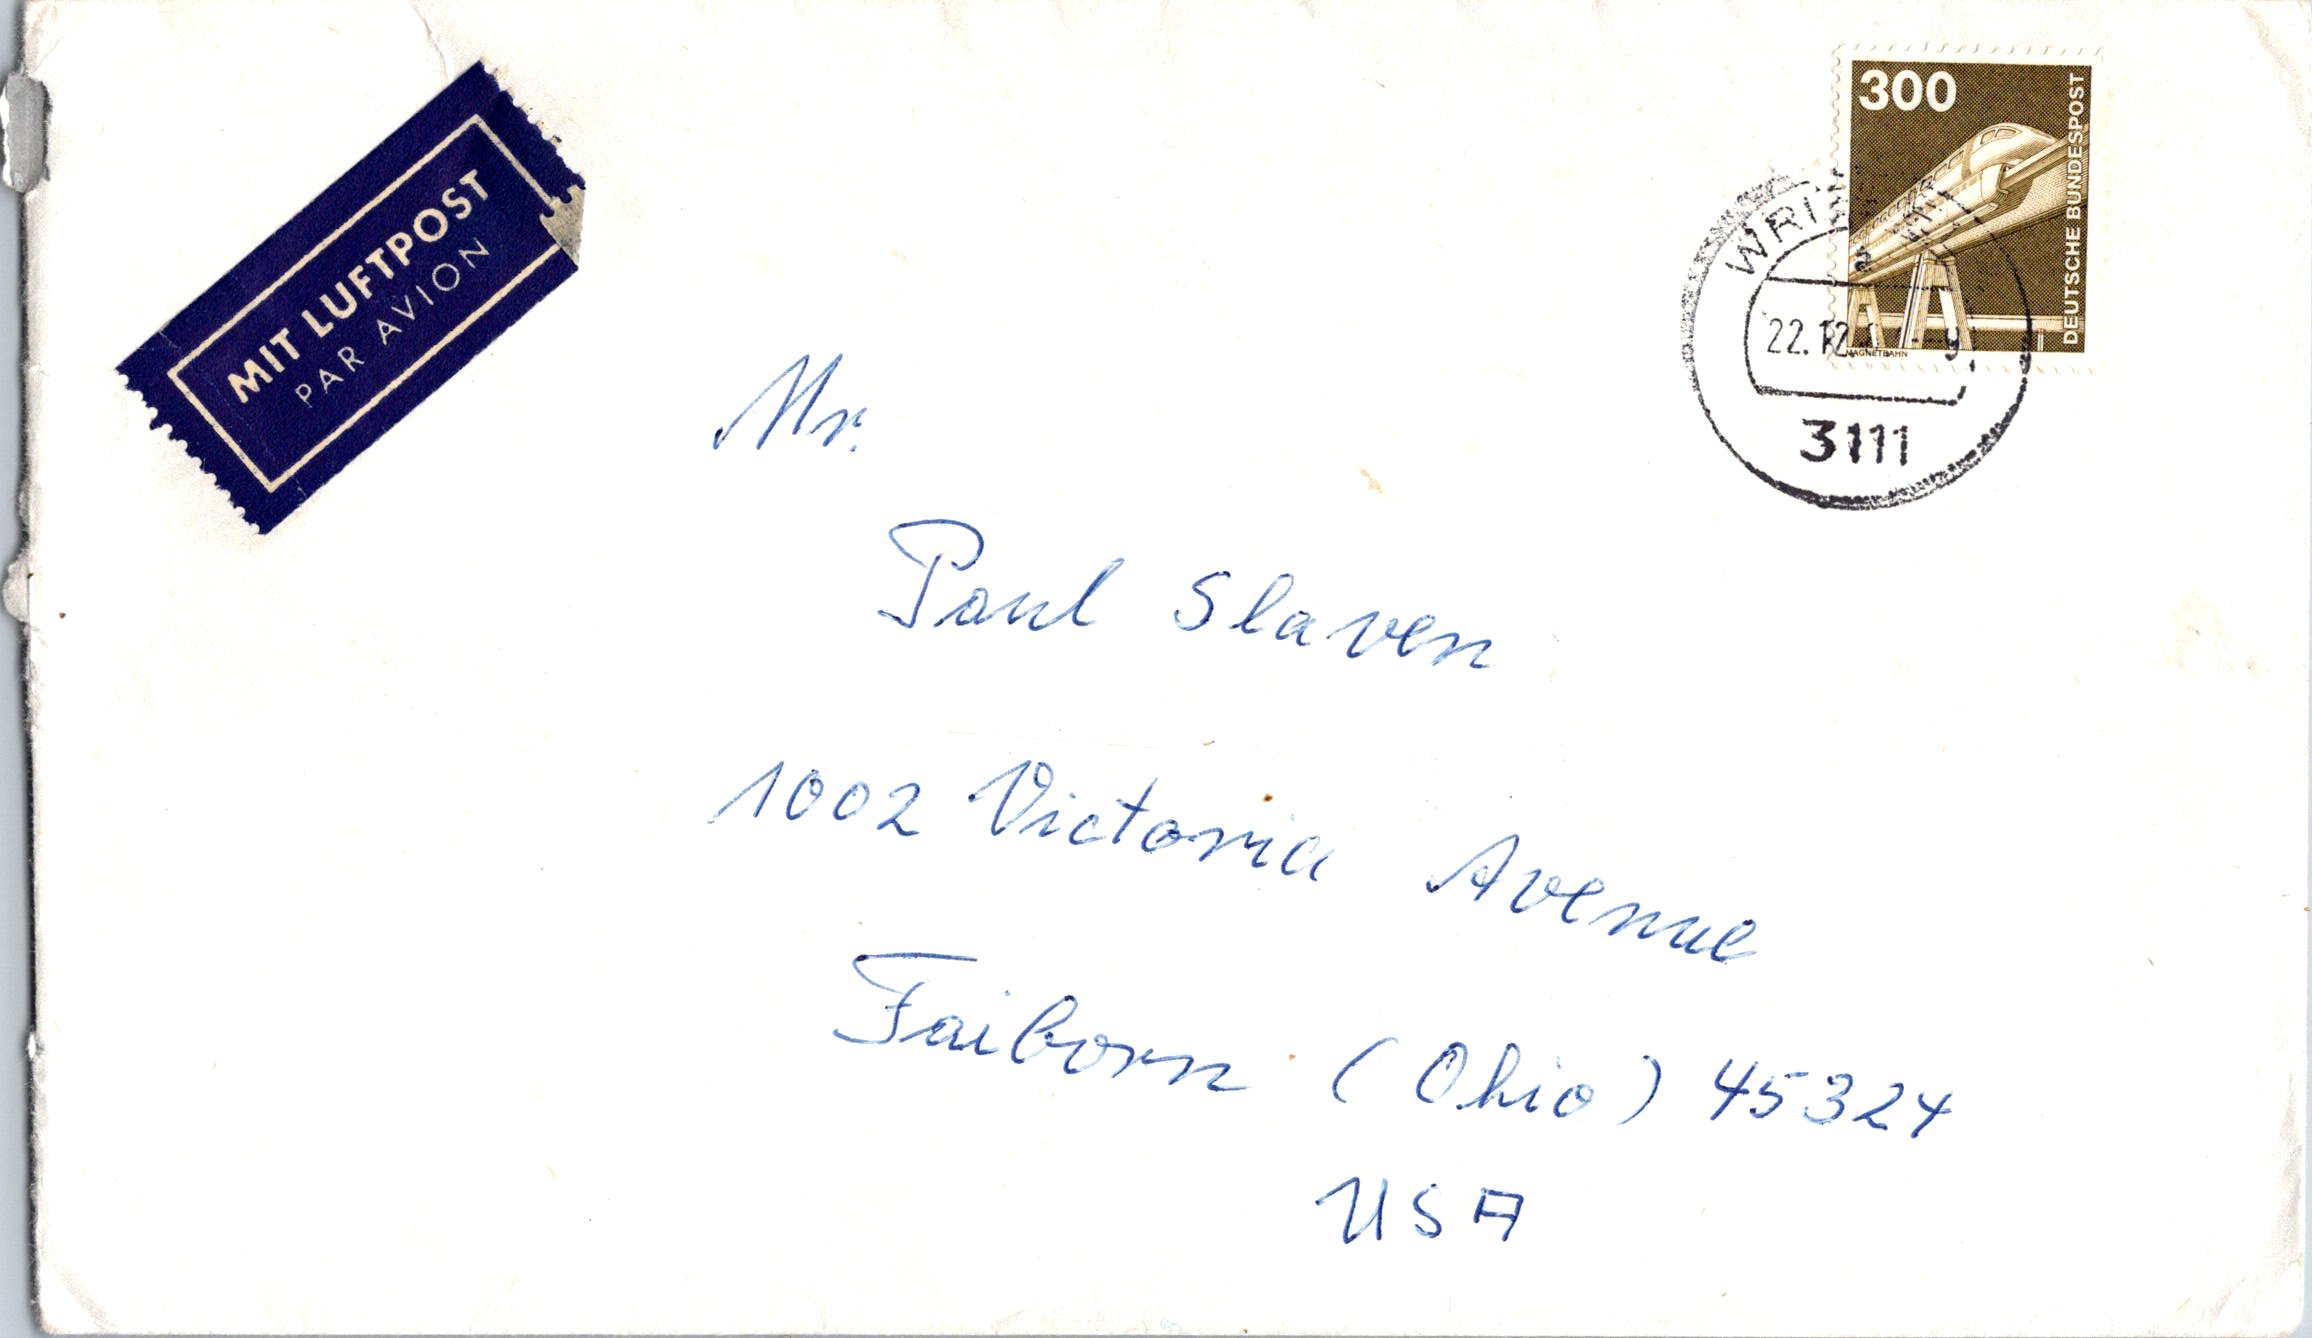 MIT LUFTPOST
PAR AVION
300
DEUTSCHE BUNDESPOST
MAGNETBAHN
22.12.
3111
Mr.
Paul Slaven
1002 Victoria Avenue
Faiborn (Ohio) 45324
USA